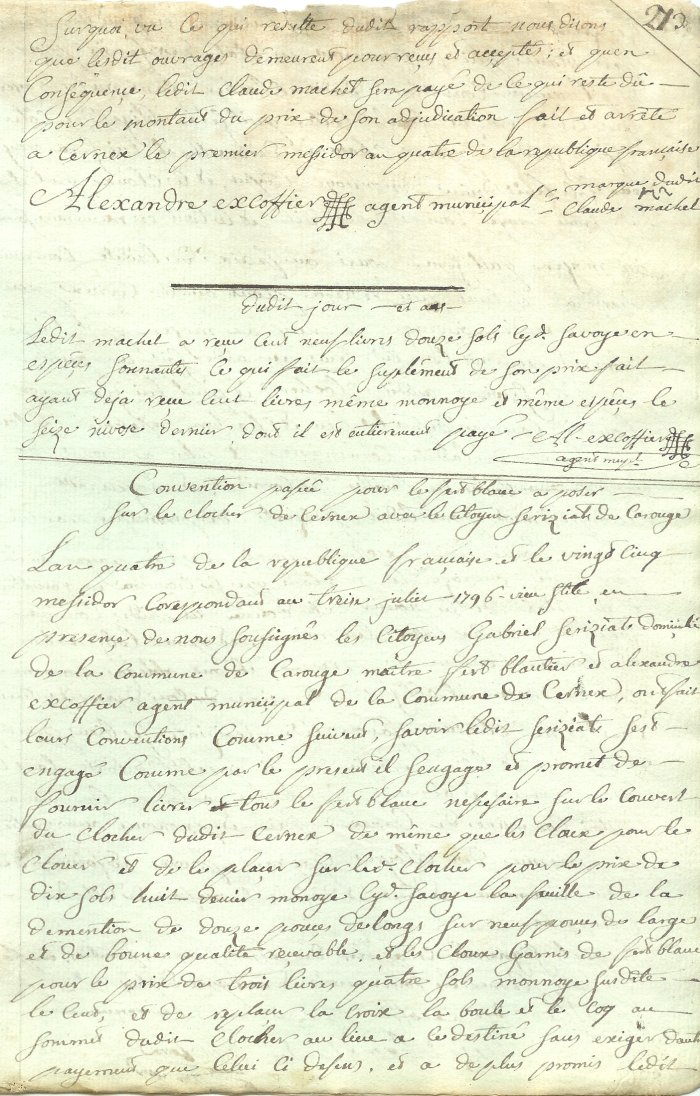 213
Surquoi vu ce qui resulte dudit rapport nous disons
que lesdit ouvrages demeurent pour reçus et acceptés; et quen
Conséquence ledit Claude machet sera payé de ce qui reste dû
pour le montant du prix de son adjudication fait et arrêté
a Cernex le premier messidor an quatre de la republique française
Alexandre excoffier agent municipal
marque dudit
Claude machet
dudit jour et an
Ledit machet a reçu Cent neuf livres douze sols cyd. Savoye en
espèces sonnantes ce qui fait le suplément de son prix fait
ayant deja reçue Cent livres même monnoye et même espèces le
seize nivose dernier dont il est entièrement payé Al. excoffier
agent mupl.
Convention passée pour le ferblanc a poser
sur le clocher de Cernex avec le Citoyen Seriziat de Carouge
Lan quatre de la republique française et le vingt cinq
messidor Corespondant au treize juliet 1796 vieu stile en
presence de nous sousignés les Citoyens Gabriel Seriziat domicilié
de la Commune de Carouge maitre ferblantier et alexandre
excoffier agent municipal de la Commune de Cernex, ont fait
leurs Conventions Comme suivent, savoir ledit Seriziat sest
engagé Comme par le present il sengage et promet de
fournir livrer tous le ferblanc nesesaire sur le Couvert
du Clocher dudit Cernex de même que les Cloux pour le
Clouer et de le plaçer sur led. Clocher pour le prix de
dix sols huit denier monoye cyd. Savoye la feuille de la
demention de douze pouces de longs sur neuf pouçes du large
et de bonne qualité reçevable, et les Cloux Garnis de ferblanc
pour le prix de trois livres quatre sols monnoye susdite
le Cent, et de replacer la Croix la boule et le Coq au
sommet dudit Clocher au lieu a ce destiné sans exiger dautre
payement que Celui Ci desus, et a de plus promis ledit